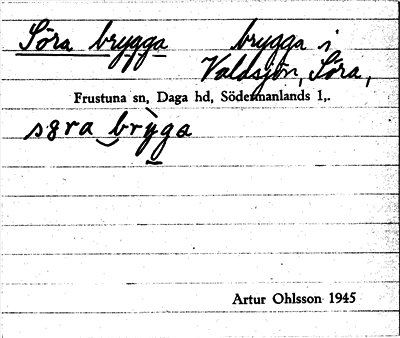 Söra brygga brygga i
Valdsjön, Söra,
Frustuna sn, Daga hd, Södermanlands l.
s8ra brỳga
Artur Ohlsson 1945